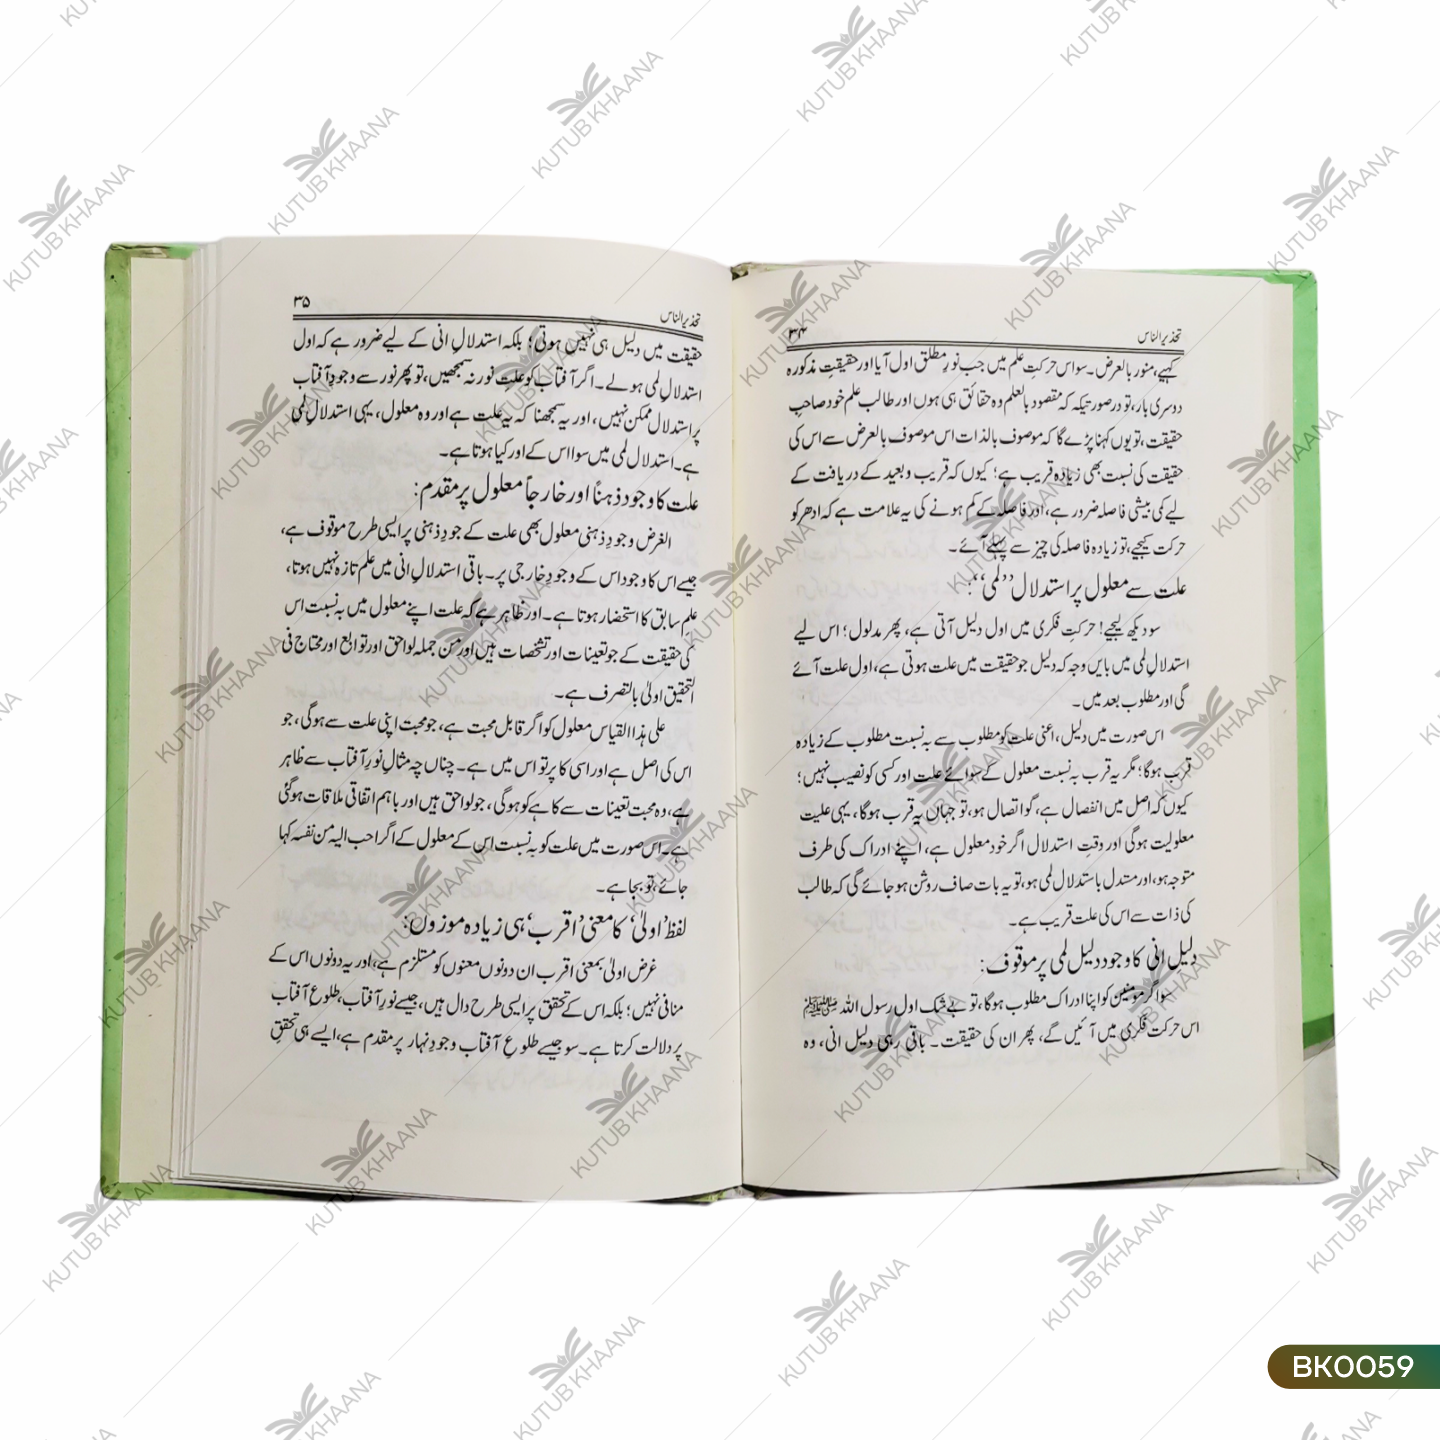 تحذیر الناس
۳۴
کہیے، منور بالعرض۔ سو اس حرکتِ علم میں جب نورِ مطلق اول آیا اور حقیقتِ مذکورہ
دوسری بار، تو درصورتیکہ کہ مقصود بالعلم وہ حقائق ہی ہوں اور طالب علم خود صاحبِ
حقیقت، تو یوں کہنا پڑے گا کہ موصوف بالذات اس موصوف بالعرض سے اس کی
حقیقت کی نسبت بھی زیادہ قریب ہے؛ کیوں کہ قریب و بعید کے دریافت کے
لیے کمی بیشی فاصلہ ضرور ہے، اور فاصلہ کے کم ہونے کی یہ علامت ہے کہ ادھر کو
حرکت کیجیے، تو زیادہ فاصلہ کی چیز سے پہلے آئے۔
علت سے معلول پر استدلال ”لمی“:
سو دیکھ لیجیے! حرکتِ فکری میں اول دلیل آتی ہے، پھر مدلول؛ اس لیے
استدلالِ لمی میں بایں وجہ کہ دلیل جو حقیقت میں علت ہوتی ہے، اول علت آئے
گی اور مطلوب بعد میں۔
اس صورت میں دلیل، اعنی علت کو مطلوب سے بہ نسبت مطلوب کے زیادہ
قرب ہوگا؛ مگر یہ قرب بہ نسبت معلول کے سوائے علت اور کسی کو نصیب نہیں؛
کیوں کہ اصل میں انفصال ہے، گو اتصال ہو، تو جہاں یہ قرب ہوگا، یہی علیت
معلولیت ہوگی اور وقتِ استدلال اگر خود معلول ہے، اپنے ادراک کی طرف
متوجہ ہو، اور مستدل باستدلال لمی ہو، تو یہ بات صاف روشن ہو جائے گی کہ طالب
کی ذات سے اس کی علت قریب ہے۔
دلیل انی کا وجود دلیل لمی پر موقوف:
سو اگر مومنین کو اپنا ادراک مطلوب ہوگا، تو بے شک اول رسول اللہ ﷺ
اس حرکت فکری میں آئیں گے، پھر ان کی حقیقت۔ باقی رہی دلیل انی، وہ
تحذیر الناس
۳۵
حقیقت میں دلیل ہی نہیں ہوتی؛ بلکہ استدلالِ انی کے لیے ضرور ہے کہ اول
استدلالِ لمی ہولے۔ اگر آفتاب کو علتِ نور نہ سمجھیں، تو پھر نور سے وجودِ آفتاب
پر استدلال ممکن نہیں، اور یہ سمجھنا کہ یہ علت ہے اور وہ معلول، یہی استدلالِ لمی
ہے۔ استدلال لمی میں سوا اس کے اور کیا ہوتا ہے۔
علت کا وجود ذہناً اور خارجاً معلول پر مقدم:
الغرض وجودِ ذہنی معلول بھی علت کے جودِ ذہنی پر ایسی طرح موقوف ہے،
جیسے اس کا وجود اس کے وجودِ خارجی پر۔ باقی استدلالِ انی میں علم تازہ نہیں ہوتا،
علم سابق کا استحضار ہوتا ہے۔ اور ظاہر ہے کہ علت اپنے معلول میں بہ نسبت اس
کی حقیقت کے جو تعینات اور تشخصات ہیں اور من جملہ لواحق اور توابع اور محتاج فی
التحقیق اولیٰ بالتصرف ہے۔
علی ہذا القیاس معلول کو اگر قابل محبت ہے، جو محبت اپنی علت سے ہوگی، جو
اس کی اصل ہے اور اسی کا پرتو اس میں ہے۔ چناں چہ مثالِ نورِ آفتاب سے ظاہر
ہے، وہ محبت تعینات سے کاہے کو ہوگی، جو لواحق ہیں اور باہم اتفاقی ملاقات ہوگئی
ہے۔ اس صورت میں علت کو بہ نسبت اس کے معلول کے اگر احب الیہ من نفسہ کہا
جائے، تو بجا ہے۔
لفظ ’اولیٰ‘ کا معنی ’اقرب‘ ہی زیادہ موزوں:
غرض اولیٰ بمعنی اقرب ان دونوں معنوں کو مستلزم ہے، اور یہ دونوں اس کے
منافی نہیں؛ بلکہ اس کے تحقق پر ایسی طرح دال ہیں، جیسے نورِ آفتاب، طلوع آفتاب
پر دلالت کرتا ہے۔ سو جیسے طلوعِ آفتاب وجودِ نہار پر مقدم ہے، ایسے ہی تحققِ
KUTUB KHAANA
BK0059